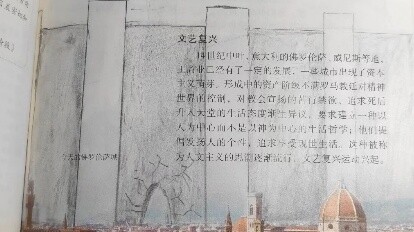 文艺复兴
14世纪中叶，意大利的佛罗伦萨、威尼斯等地，
工商业已经有了一定的发展，一些城市出现了资本
主义萌芽。形成中的资产阶级不满罗马教廷对精神
世界的控制，对教会宣扬的苦行禁欲、追求死后
升入天堂的生活态度渐生异议，要求建立一种以
人为中心而不是以神为中心的生活哲学；他们提
倡发扬人的个性，追求享受现世生活。这种被称
为人文主义的思潮逐渐流行，文艺复兴运动兴起。
今天的佛罗伦萨城